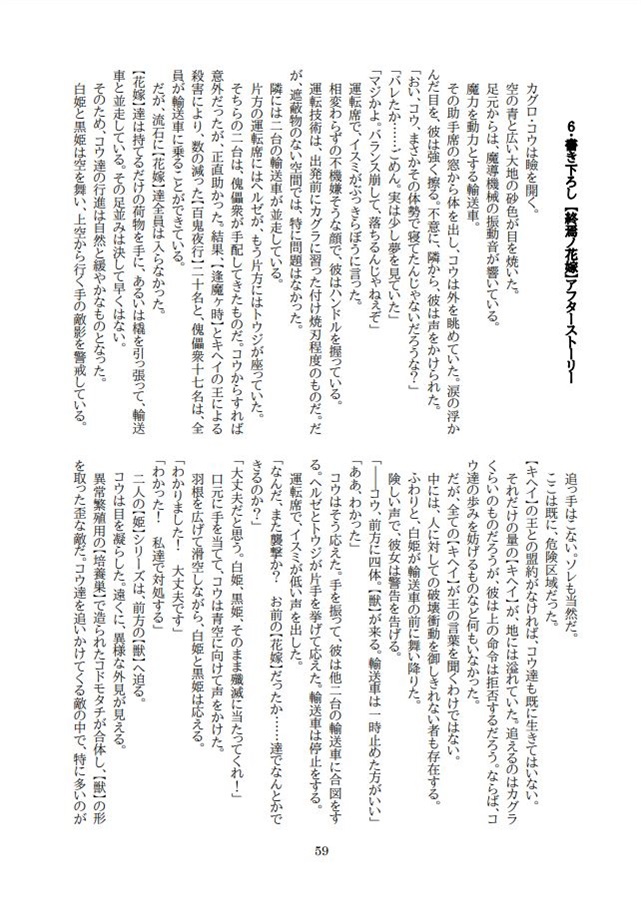 6・書き下ろし【終焉ノ花嫁】アフターストーリー
カグロ・コウは瞼を開く。
空の青と広い大地の砂色が目を焼いた。
足元からは、魔導機械の振動音が響いている。
魔力を動力とする輸送車。
その助手席の窓から体を出し、コウは外を眺めていた。涙の浮か
んだ目を、彼は強く擦る。不意に、隣から、彼は声をかけられた。
「おい、コウ、まさかその体勢で寝てたんじゃないだろうな?」
「バレたか……ごめん。実は少し夢を見ていた」
「マジかよ。バランス崩して、落ちるんじゃねえぞ」
運転席で、イスミがぶっきらぼうに言った。
相変わらずの不機嫌そうな顔で、彼はハンドルを握っている。
運転技術は、出発前にカグラに習った付け焼刃程度のものだ。だ
が、遮蔽物のない空間では、特に問題はなかった。
隣には二台の輸送車が、並走している。
片方の運転席にはヘルゼが、もう片方にはトウジが座っていた。
そちらの二台は、傀儡衆が手配してきたものだ。コウからすれば
意外だったが、正直助かった。結果、【逢魔ヶ時】とキヘイの王による
殺害により、数の減った【百鬼夜行】二十名と、傀儡衆十七名は、全
員が輸送車に乗ることができている。
だが、流石に【花嫁】達全員は入らなかった。
【花嫁】達は持てるだけの荷物を手に、あるいは橇を引っ張って、輸送
車と並走している。その足並みは決して早くはない。
そのため、コウ達の行進は自然と緩やかなものとなった。
白姫と黒姫は空を舞い、上空から行く手の敵影を警戒している。
追っ手はこない。ソレも当然だ。
ここは既に、危険区域だった。
【キヘイ】の王との盟約がなければ、コウ達も既に生きてはいない。
それだけの量の【キヘイ】が、地には溢れていた。追えるのはカグラ
くらいのものだろうが、彼は上の命令は拒否するだろう。ならば、コ
ウ達の歩みを妨げるものなど何もいなかった。
だが、全ての【キヘイ】が王の言葉を聞くわけではない。
中には、人に対しての破壊衝動を御しきれない者も存在する。
ふわりと、白姫が輸送車の前に舞い降りた。
険しい声で、彼女は警告を告げる。
「――コウ、前方に四体。【獣】が来る。輸送車は一時止めた方がいい」
「ああ、わかった」
コウはそう応えた。手を振って、彼は他二台の輸送車に合図をす
る。ヘルゼとトウジが片手を挙げて応えた。輸送車は停止をする。
運転席で、イスミが低い声を出した。
「なんだ、また襲撃か? お前の【花嫁】だったか……達でなんとかで
きるのか?」
「大丈夫だと思う。白姫、黒姫、そのまま殲滅に当たってくれ!」
口元に手を当てて、コウは青空に向けて声をかけた。
羽根を広げて滑空しながら、白姫と黒姫は応える。
「わかりました! 大丈夫です」
「わかった! 私達で対処する」
二人の【姫】シリーズは、前方の【獣】へ迫る。
コウは目を凝らした。遠くに、異様な外見が見える。
異常繁殖用の【培養巣】で造られたコドモタチが合体し、【獣】の形
を取った歪な敵だ。コウ達を追いかけてくる敵の中で、特に多いのが
59